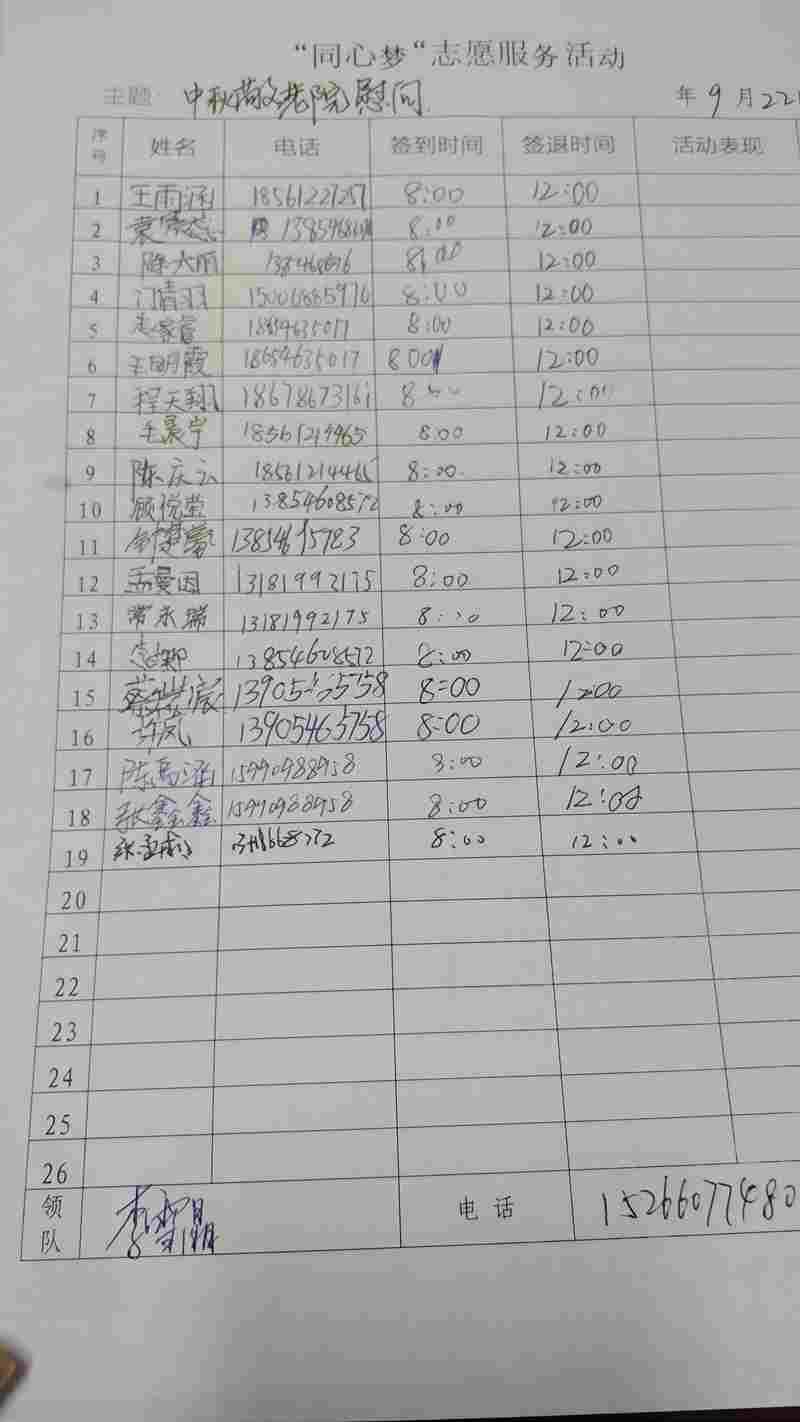 “同心梦“志愿服务活动
主题 中秋敬老院慰问 年 9 月 22
序号 姓名 电话 签到时间 签退时间 活动表现
1 王雨涵 18561221257 8:00 12:00
2 8:00 12:00
3 陈大丽 12:00
4 门清羽 15006885976 8:00 12:00
5 18654635017 8:00 12:00
6 王明霞 18654635017 8 00 12:00
7 程天翔 18678673161 8 12:00
8 王晨宁 8:00 12:00
9 陈庆云 18561214465 8:00 12:00
10 顾悦莹 13854608572 8:00 12:00
11 8:00 12:00
12 孟曼因 13181992175 8:00 12:00
13 常永瑞 13181992175 8:00 12:00
14 13854608572 8:00 12:00
15 8=00 1200
16 许凤 13905465758 8=00 12:00
17 15990988958 8:00 12:00
18 张鑫鑫 15990988958 8:00 12:00
19 8:00 12:00
20
21
22
23
24
25
26
领队 电话 15266077480